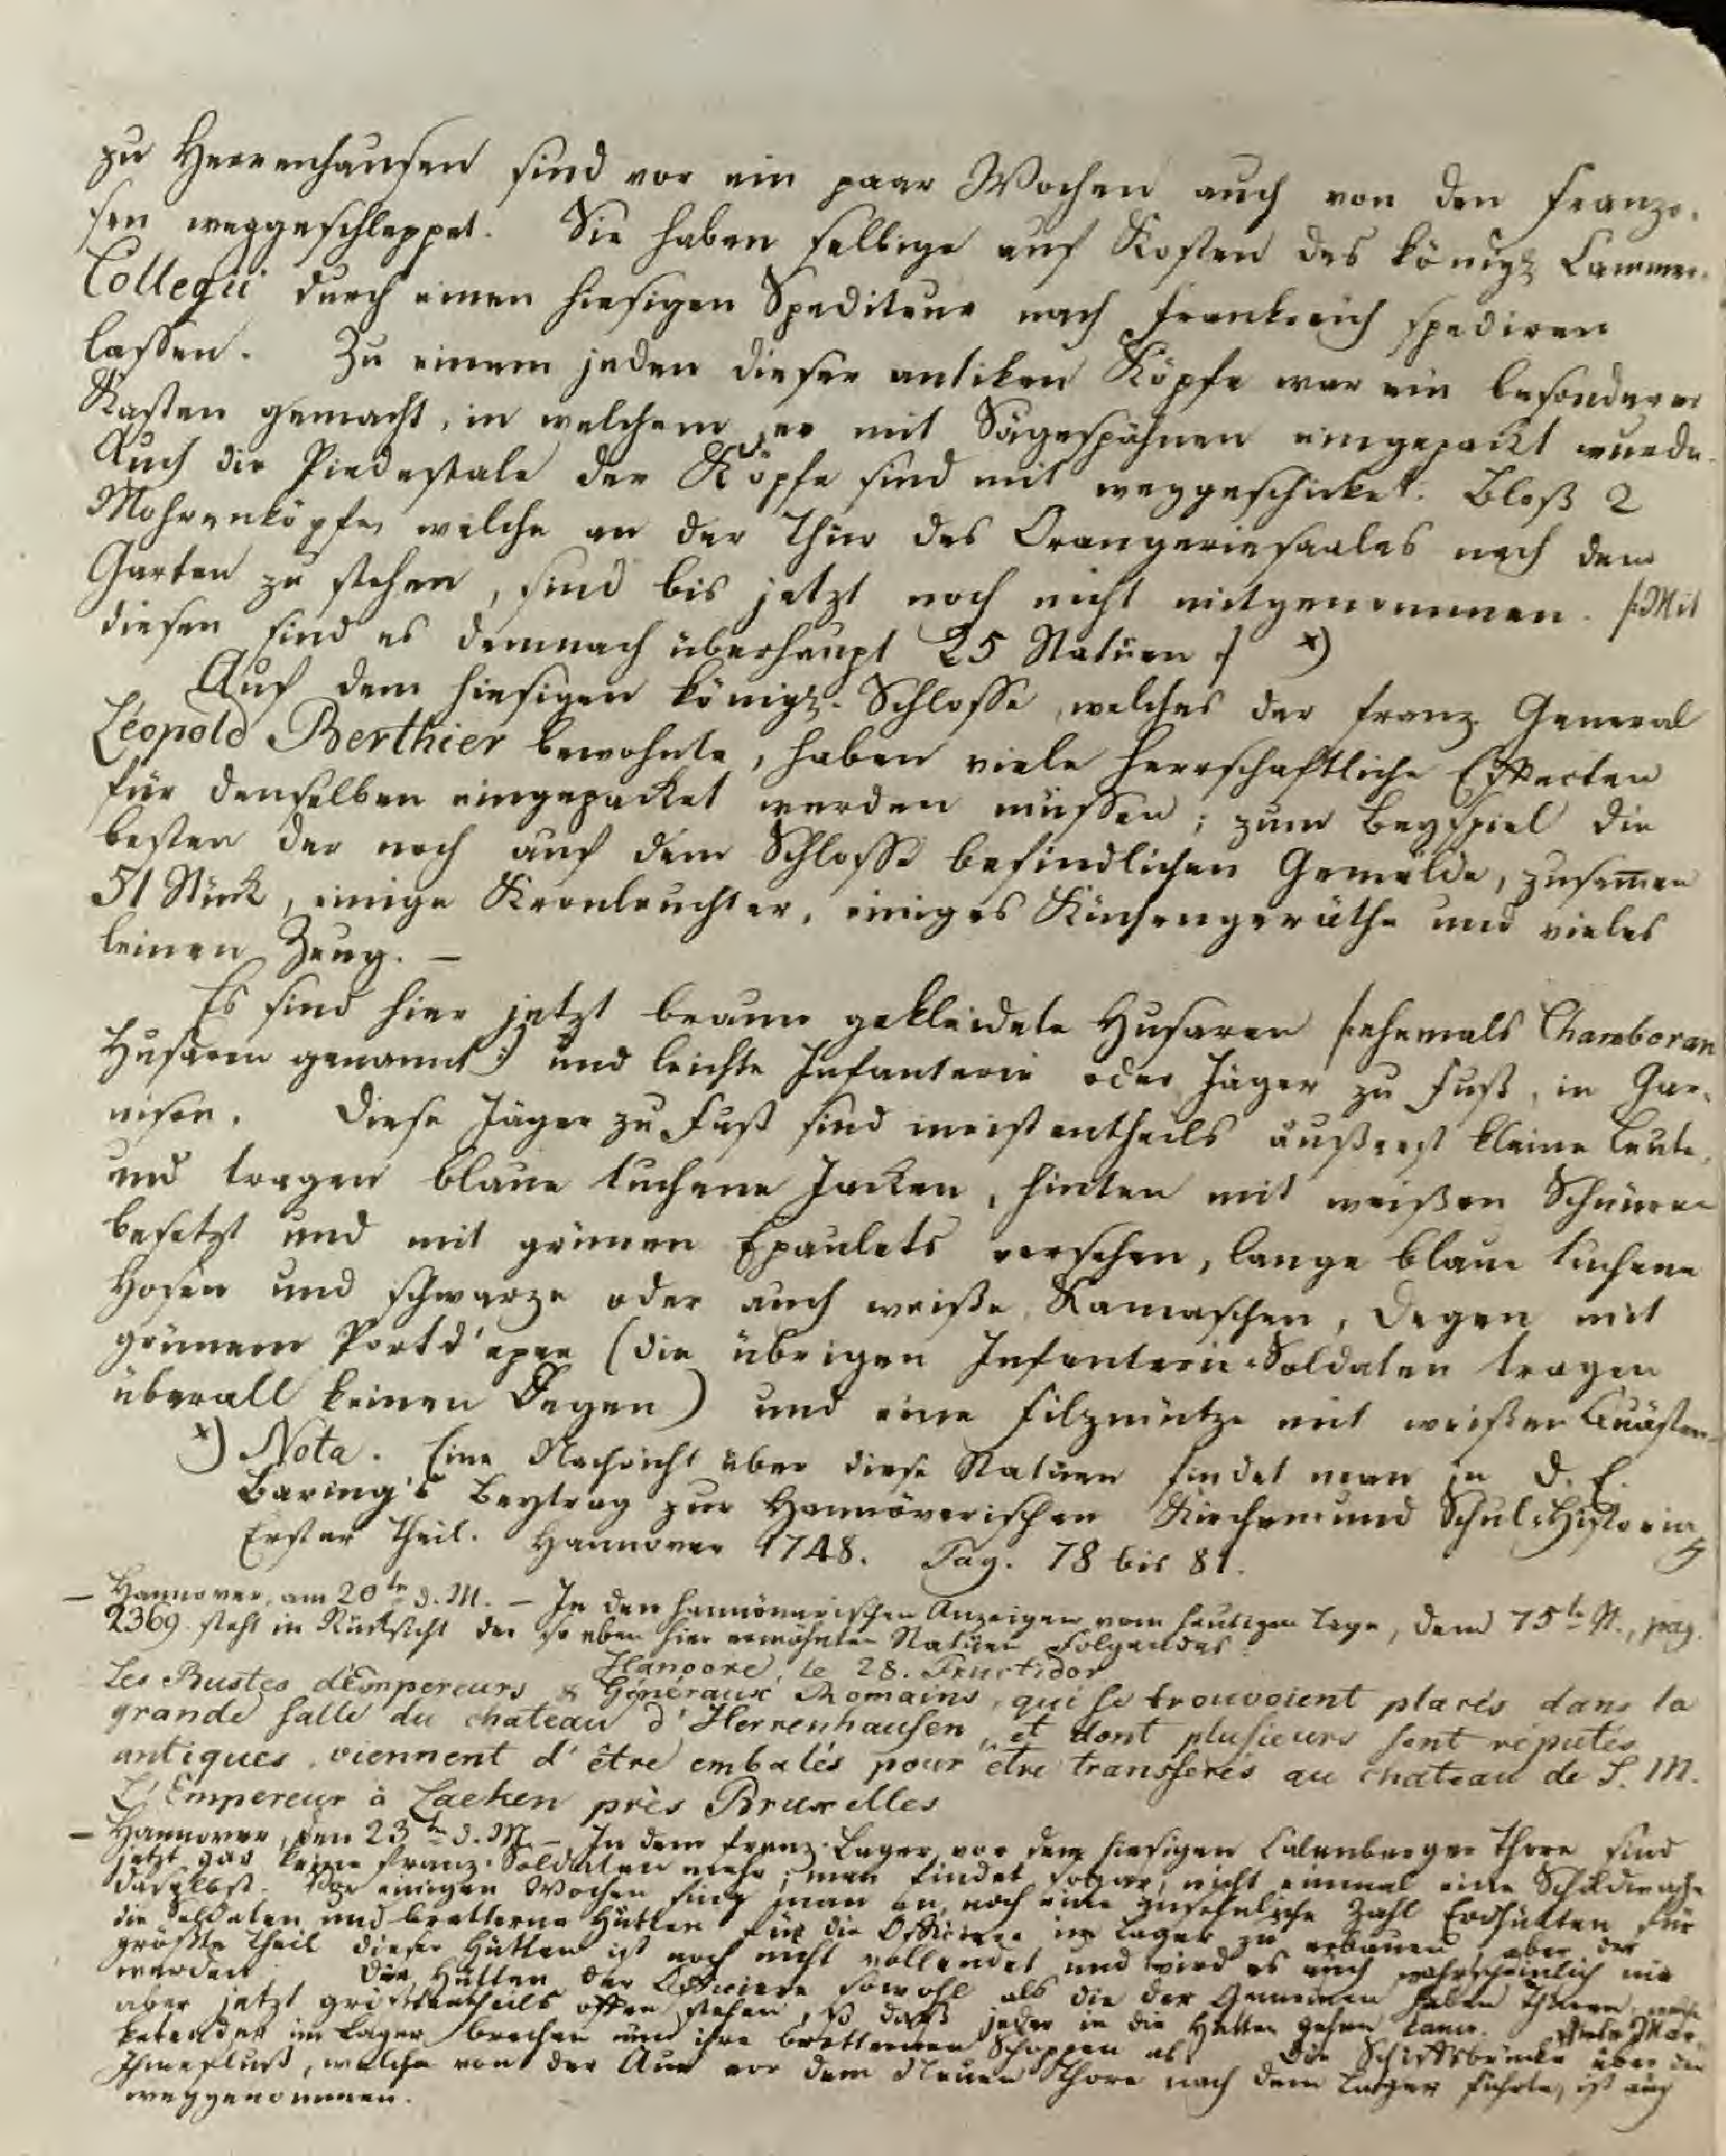 zu Herrenhausen sind vor ein paar Wochen auch von den Franzo-
sen weggeschleppet. Sie haben selbige auf Kosten des königl. Cammer-
Collegii durch einen hiesigen Spediteur nach Frankreich spediren
lassen. Zu einem jeden dieser antiken Köpfe war ein besonderer
Kasten gemacht, in welchem er mit Sägespähnen eingepackt wurde.
Auch die Piedestale der Köpfe sind mit weggeschicket. Bloß 2
Mohrenköpfe, welche an der Thür des Orangeriesaales nach dem
Garten zu stehen, sind bis jetzt noch nicht mitgenommen. /:Mit
diesen sind es demnach überhaupt 25 Statüen :/ *)
Auf dem hiesigen königl. Schlosse, welches der franz. General
Léopold Berthier bewohnte, haben viele herrschaftliche Effecten
für denselben eingepacket werden müssen; zum Beyspiel die
besten der noch auf dem Schlosse befindlichen Gemälde, zusamen
51 Stück, einige Kronleuchter, einiges Küchengeräthe und vieles
leinen Zeug. —
Es sind hier jetzt braun gekleidete Husaren /:ehemals Chamboran
Husaren genannt:/ und leichte Infanterie oder Jäger zu Fuß, in Gar-
nison. Diese Jäger zu Fuß sind meistentheils äußerst kleine Leute,
und tragen blaue tuchene Jacken, hinten mit weißen Schnüren
besetzt und mit grünen Epaulets versehen, lange blaue tuchene
Hosen und schwarze oder auch weiße Kamaschen, Degen mit
grünem Portd'epee (die übrigen Infanterie-Soldaten tragen
überall keinen Degen) und eine Filzmütze mit weißen Quästen.
*) Nota. Eine Nachricht über diese Statüen findet man in D. E.
Baring's Beytrag zur Hannöverischen Kirchen- und Schul-Historia,
Erster Theil. Hannover 1748. Pag. 78 bis 81.
— Hannover, am 20ten d. M. — In den hannöverischen Anzeigen vom heutigen Tage, dem 75ten St., pag.
2369 steht in Rücksicht der so eben hier erwähnten Statüen Folgendes:
Hanovre, le 28. Fructidor
Les Bustes d'Empereurs & Généraux Romains, qui se trouvoient placés dans la
grande salle du chateau d'Herrenhausen, et dont plusieurs sont réputés
antiques, viennent d'être embalés pour être transférés au chateau de S. M.
L'Empereur à Lacken près Bruxelles
— Hannover, den 23ten d. M. — In dem franz. Lager vor dem hiesigen Calenberger Thore sind
jetzt gar keine franz. Soldaten mehr; man findet sogar nicht einmal eine Schildwache
daselbst. Vor einigen Wochen fing man an, noch eine ansehnliche Zahl Erdhütten für
die Soldaten und bretterne Hütten für die Officiere im Lager zu erbauen, aber der
größte Theil dieser Hütten ist noch nicht vollendet und wird es auch wahrscheinlich nie
werden. Die Hütten der Officiere sowohl als die der Gemeinen haben Thüren, welche
aber jetzt größtentheils offen stehen, so daß jeder in die Hütten gehen kann. Viele Mar-
ketender im Lager brechen nun ihre bretternen Schoppen ab. Die Schiffbrücke über den
Ihmefluß, welche von der Aue vor dem Neuen Thore nach dem Lager führte, ist auch
weggenommen.